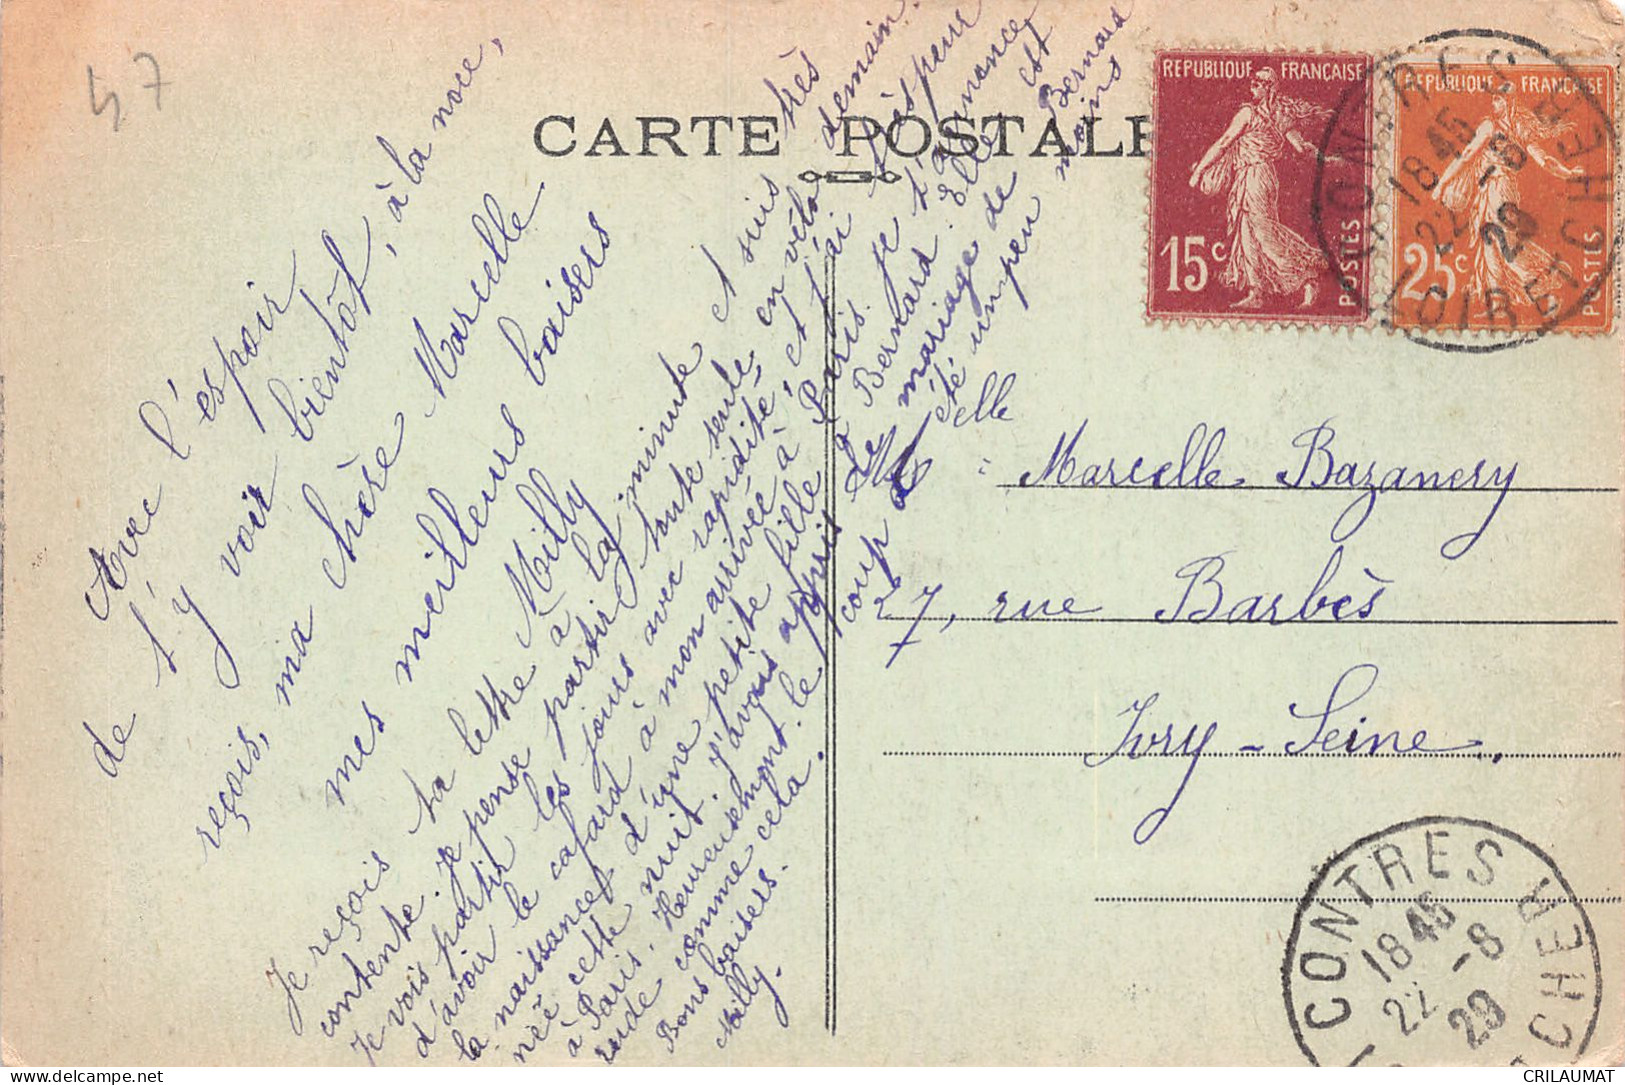 47
CARTE POSTALE
REPUBLIQUE FRANÇAISE
15c
POSTES
REPUBLIQUE FRANÇAISE
25c
POSTES
CONTRES
18 45
22 -8
29
LOIR ET CHER
Avec l'espoir
de t'y voir bientôt, à la noce,
reçois, ma chère Marcelle
mes meilleurs baisers
Milly
Je reçois ta lettre à la minute et suis très
contente. Je pense partir toute seule en vélo demain.
Je vois partir les jours avec rapidité et j'ai
d'avoir le cafard à mon arrivée à Paris. Je t'annonce
la naissance d'une petite fille Bernard. Elle est
née cette nuit. J'avais appris le mariage de Bernard
à Paris. Heureusement. le coup a été un peu moins
rude comme cela.
Bons baisers.
Milly.
Melle Marcelle Bazanery
27, rue Barbès
Ivry-Seine.
CONTRES
18 45
22 -8
29
ET CHER
CRILAUMAT